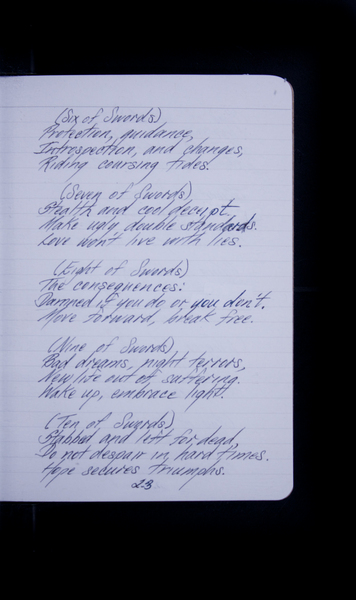 (Six of Swords)
Protection, guidance,
Introspection, and changes,
Riding coursing tides.
(Seven of Swords)
Stealth and cool deceipt
Make ugly double standards.
Love won't live with lies.
(Eight of Swords)
The consequences:
Damned if you do or you don't.
Move forward, break free.
(Nine of Swords)
Bad dreams, night terrors,
New life out of suffering.
Wake up, embrace light.
(Ten of Swords)
Stabbed and left for dead,
Do not despair in hard times.
Hope secures triumphs.
23